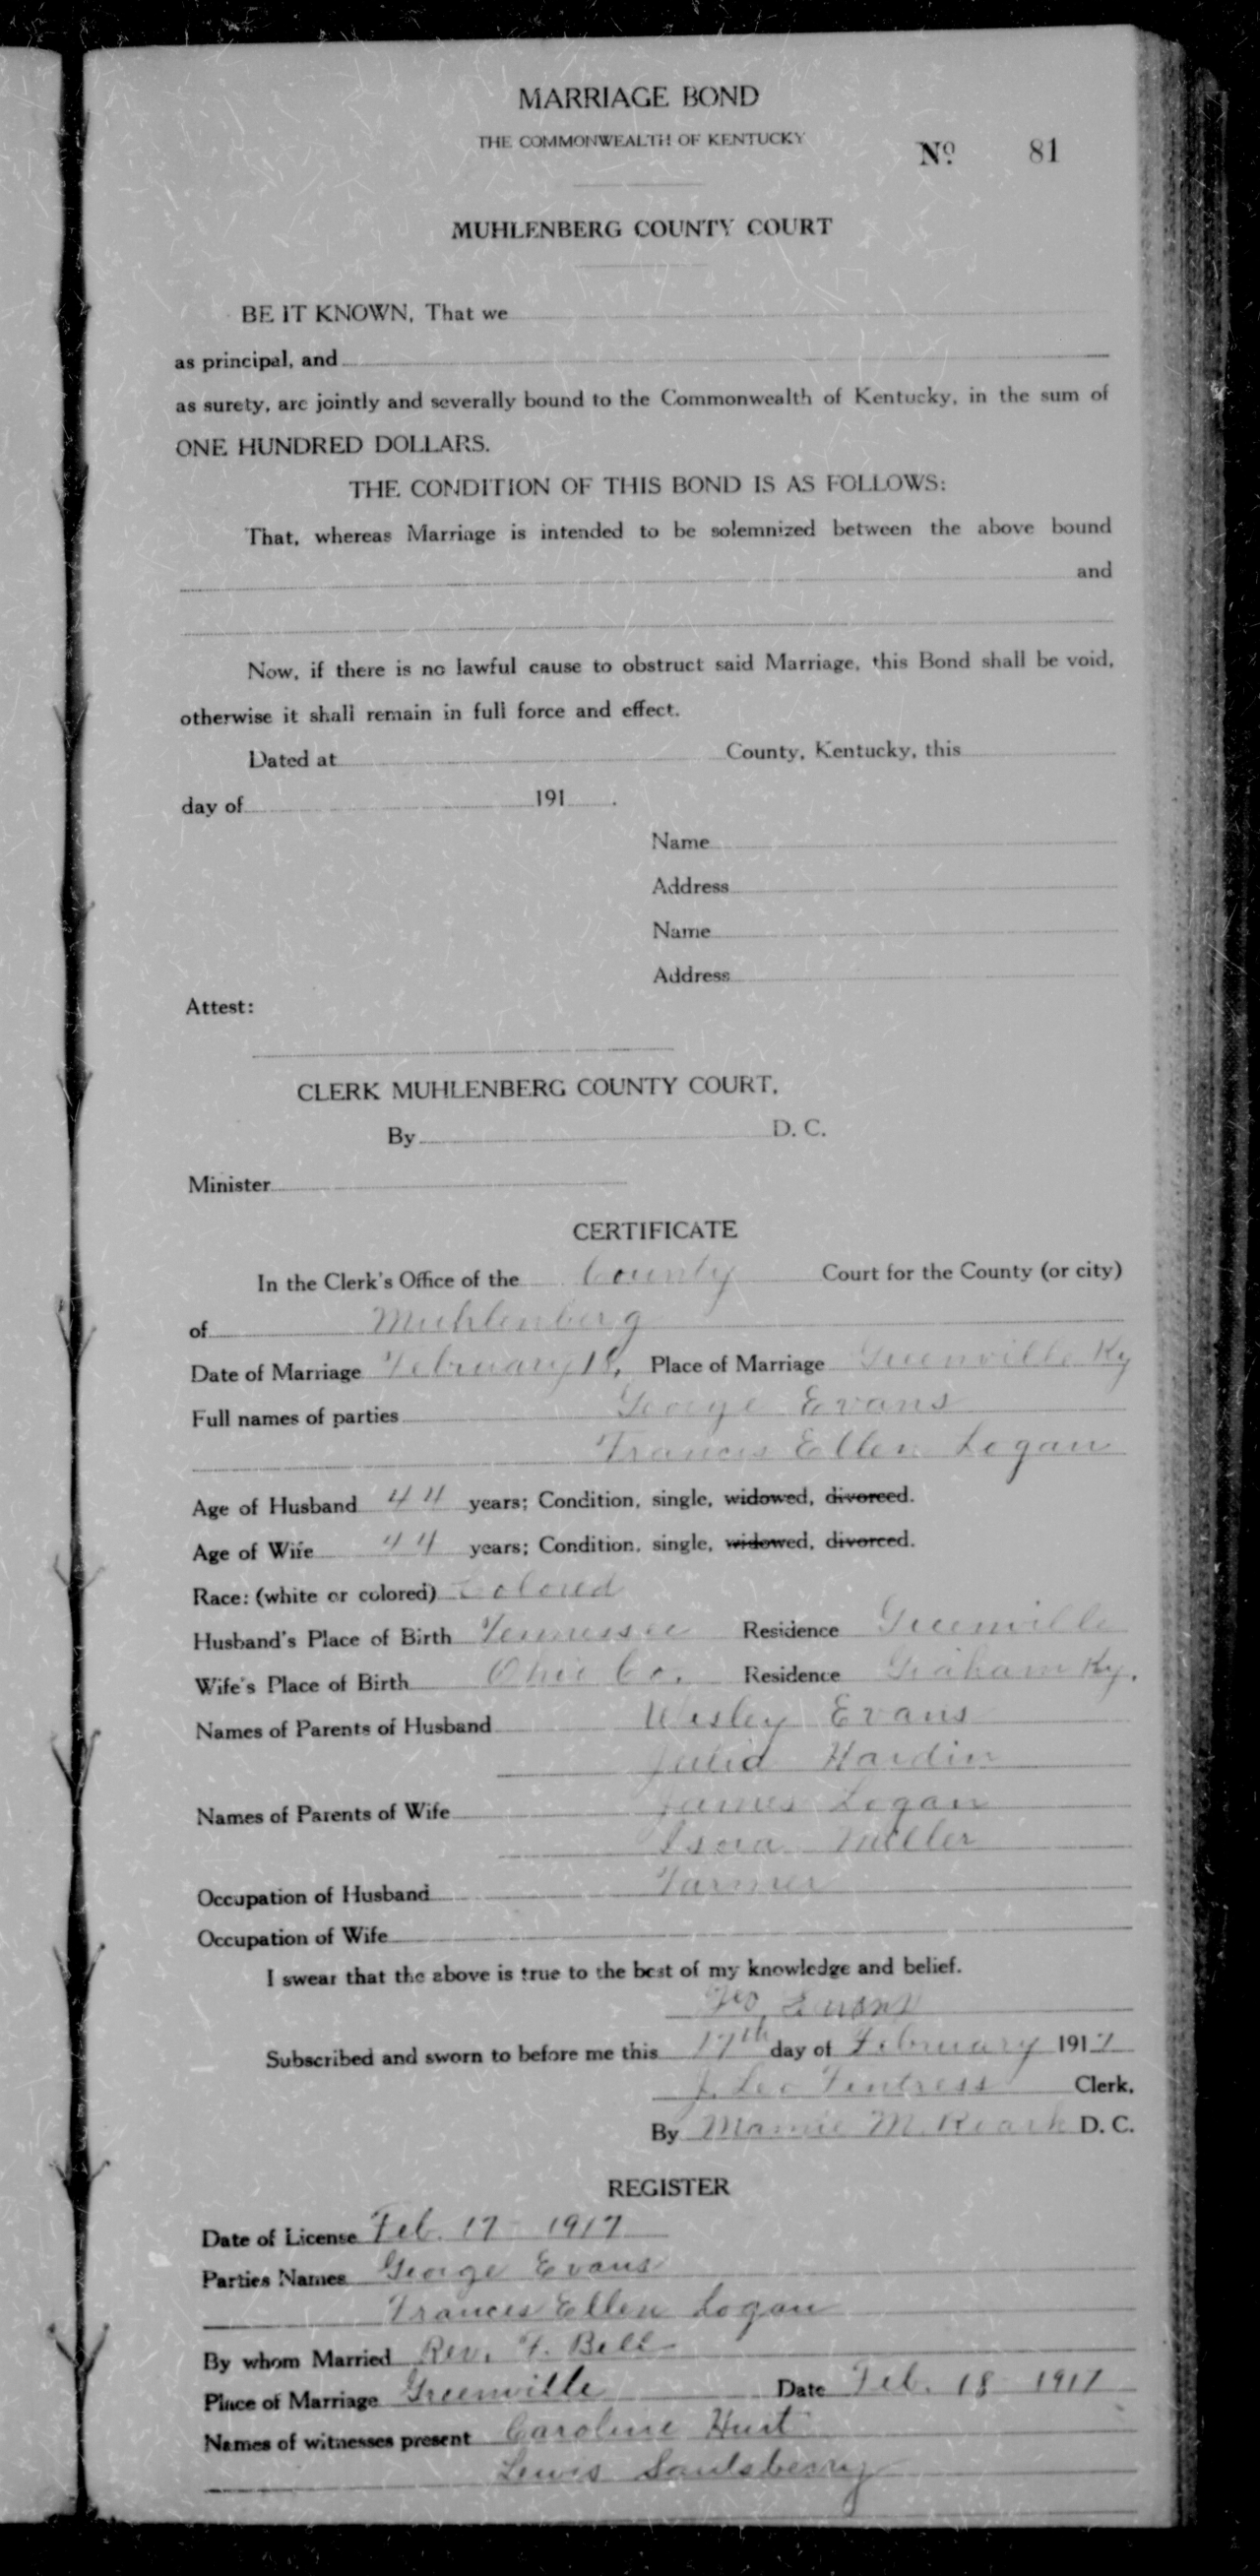 MARRIAGE BOND
THE COMMONWEALTH OF KENTUCKY
No. 81
MUHLENBERG COUNTY COURT
BE IT KNOWN, That we
as principal, and
as surety, are jointly and severally bound to the Commonwealth of Kentucky, in the sum of
ONE HUNDRED DOLLARS.
THE CONDITION OF THIS BOND IS AS FOLLOWS:
That, whereas Marriage is intended to be solemnized between the above bound
and
Now, if there is no lawful cause to obstruct said Marriage, this Bond shall be void,
otherwise it shall remain in full force and effect.
Dated at County, Kentucky, this
day of 191 .
Name
Address
Name
Address
Attest:
CLERK MUHLENBERG COUNTY COURT.
By D. C.
Minister
CERTIFICATE
In the Clerk's Office of the County Court for the County (or city)
of Muhlenberg
Date of Marriage February 18, Place of Marriage Greenville Ky
Full names of parties George Evans
Frances Ellen Logan
Age of Husband 44 years; Condition, single, widowed, divorced.
Age of Wife 44 years; Condition, single, widowed, divorced.
Race: (white or colored) Colored
Husband's Place of Birth Tennessee Residence Greenville
Wife's Place of Birth Ohio Co. Residence Graham Ky.
Names of Parents of Husband Wesley Evans
Julia Hardin
Names of Parents of Wife James Logan
Miller
Occupation of Husband Farmer
Occupation of Wife
I swear that the above is true to the best of my knowledge and belief.
Geo, Evans
Subscribed and sworn to before me this 17th day of February 1917
J. Leo Fentress Clerk.
By Mamie M. Roark D. C.
REGISTER
Date of License Feb. 17 1917
Parties Names George Evans
Frances Ellen Logan
By whom Married Rev. F. Bell
Place of Marriage Greenville Date Feb. 18 1917
Names of witnesses present Caroline Hunt
Lewis Saulsberry